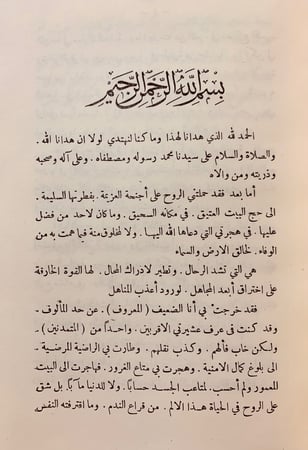 بسم الله الرحمن الرحيم
الحمد لله الذي هدانا لهذا وما كنا لنهتدي لولا ان هدانا الله .
والصلاة والسلام على سيدنا محمد رسوله ومصطفاه . وعلى آله وصحبه
وذريته ومن والاه
أما بعد فقد حملتني الروح على أجنحة العزيمة . بفطرتها السليمة .
الى حج البيت العتيق . في مكانه السحيق . وما كان لاحد من فضل
عليها . في هجرتي التي دعاها الله اليها . ولا لمخلوق منة فيما همت به من
الوفاء . لخالق الارض والسماء
هي التي تشد الرحال . وتطير لادراك المحال . لها القوة الخارقة
على اختراق أبعد المجاهل . لورود أعذب المناهل
فقد خرجت بي أنا الضعيف ( المعروف ) . عن حد المألوف .
وقد كنت في عرف عشيرتي الاقربين . واحداً من ( المتمدنين ) .
ولكن خاب فألهم . وكذب نقلهم . وطارت بي الراضية المرضية .
الى بلوغ كمال الامنية . وهاجرت في متاع الغرور . فهاجرت الى البيت
المعمور ولم أحسب لمتاعب الجسد حساباً . ولا للدنيا مآباً . بل شق
على الروح في الحياة هذا الالم . من قراع الندم . وما اقترفته النفس